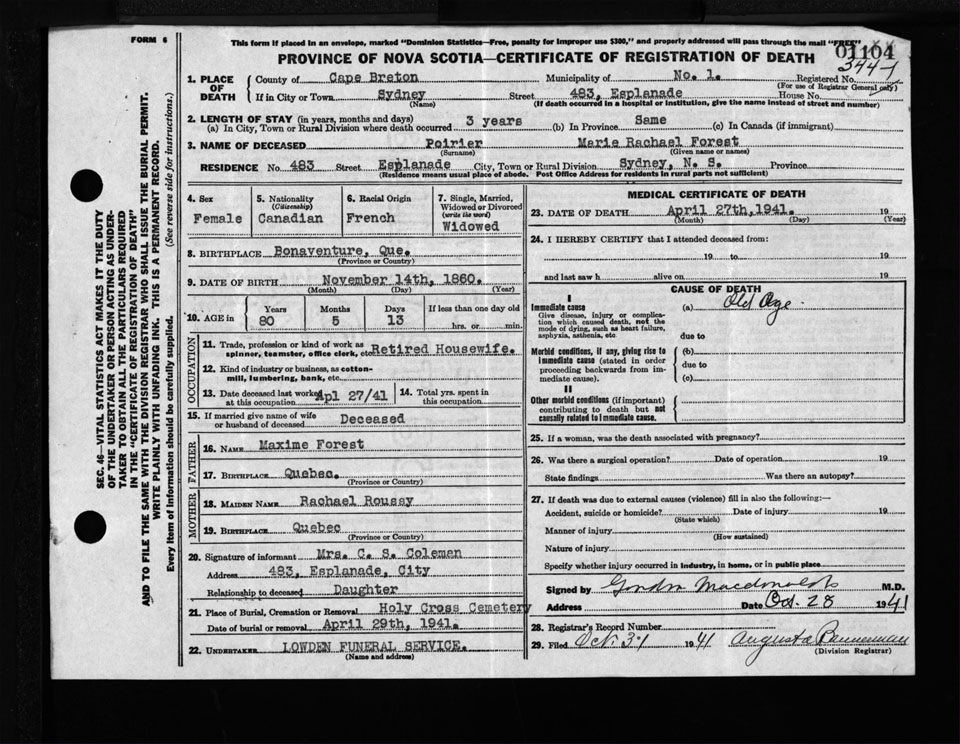 FORM 6
This form if placed in an envelope, marked "Dominion Statistics—Free, penalty for improper use $300," and properly addressed will pass through the mail "FREE"
01104
PROVINCE OF NOVA SCOTIA—CERTIFICATE OF REGISTRATION OF DEATH
3447
1. PLACE OF DEATH
County of Cape Breton Municipality of No. 1. Registered No.
(For use of Registrar General only)
If in City or Town Sydney Street 483, Esplanade House No.
(Name) (If death occurred in a hospital or institution, give the name instead of street and number)
2. LENGTH OF STAY (in years, months and days)
(a) In City, Town or Rural Division where death occurred 3 years (b) In Province Same (c) In Canada (if immigrant)
3. NAME OF DECEASED Poirier Marie Rachael Forest
(Surname) (Given name or names)
RESIDENCE No. 483 Street Esplanade City, Town or Rural Division Sydney, N. S. Province
(Residence means usual place of abode. Post Office Address for residents in rural parts not sufficient)
4. Sex
Female
5. Nationality
(Citizenship)
Canadian
6. Racial Origin
French
7. Single, Married, Widowed or Divorced
(write the word)
Widowed
8. BIRTHPLACE Bonaventure, Que.
(Province or Country)
9. DATE OF BIRTH November 14th, 1860.
(Month) (Day) (Year)
10. AGE in
Years Months Days If less than one day old
80 5 13 hrs. or min.
OCCUPATION
11. Trade, profession or kind of work as spinner, teamster, office clerk, etc. Retired Housewife.
12. Kind of industry or business, as cotton-mill, lumbering, bank, etc.
13. Date deceased last worked at this occupation Apl 27/41
14. Total yrs. spent in this occupation
15. If married give name of wife or husband of deceased Deceased
FATHER
16. NAME Maxime Forest
17. BIRTHPLACE Quebec.
(Province or Country)
MOTHER
18. MAIDEN NAME Rachael Roussy
19. BIRTHPLACE Quebec
(Province or Country)
20. Signature of informant Mrs. C. S. Coleman
Address 483, Esplanade, City
Relationship to deceased Daughter
21. Place of Burial, Cremation or Removal Holy Cross Cemetery
Date of burial or removal April 29th, 1941.
22. UNDERTAKER LOWDEN FUNERAL SERVICE.
(Name and address)
MEDICAL CERTIFICATE OF DEATH
23. DATE OF DEATH April 27th, 1941. 19
(Month) (Day) (Year)
24. I HEREBY CERTIFY that I attended deceased from:
19 to 19
and last saw h alive on 19
CAUSE OF DEATH
I
Immediate cause
Give disease, injury or complication which caused death, not the mode of dying, such as heart failure, asphyxia, asthenia, etc
(a) Old Age.
due to
Morbid conditions, if any, giving rise to immediate cause (stated in order proceeding backwards from immediate cause).
(b)
due to
(c)
II
Other morbid conditions (if important) contributing to death but not causally related to immediate cause.
25. If a woman, was the death associated with pregnancy?
26. Was there a surgical operation? Date of operation 19
State findings Was there an autopsy?
27. If death was due to external causes (violence) fill in also the following:—
Accident, suicide or homicide? Date of injury 19
(State which)
Manner of injury
(How sustained)
Nature of injury
Specify whether injury occurred in industry, in home, or in public place
Signed by Gordon Macdonald M.D.
Address Date Oct. 28 1941
28. Registrar's Record Number
29. Filed Oct. 31 1941 Augusta Bannerman
(Division Registrar)
SEC. 46—VITAL STATISTICS ACT MAKES IT THE DUTY
OF THE UNDERTAKER OR PERSON ACTING AS UNDER-
TAKER TO OBTAIN ALL THE PARTICULARS REQUIRED
IN THE "CERTIFICATE OF REGISTRATION OF DEATH"
AND TO FILE THE SAME WITH THE DIVISION REGISTRAR WHO SHALL ISSUE THE BURIAL PERMIT.
WRITE PLAINLY WITH UNFADING INK. THIS IS A PERMANENT RECORD.
Every item of information should be carefully supplied. (See reverse side for instructions.)